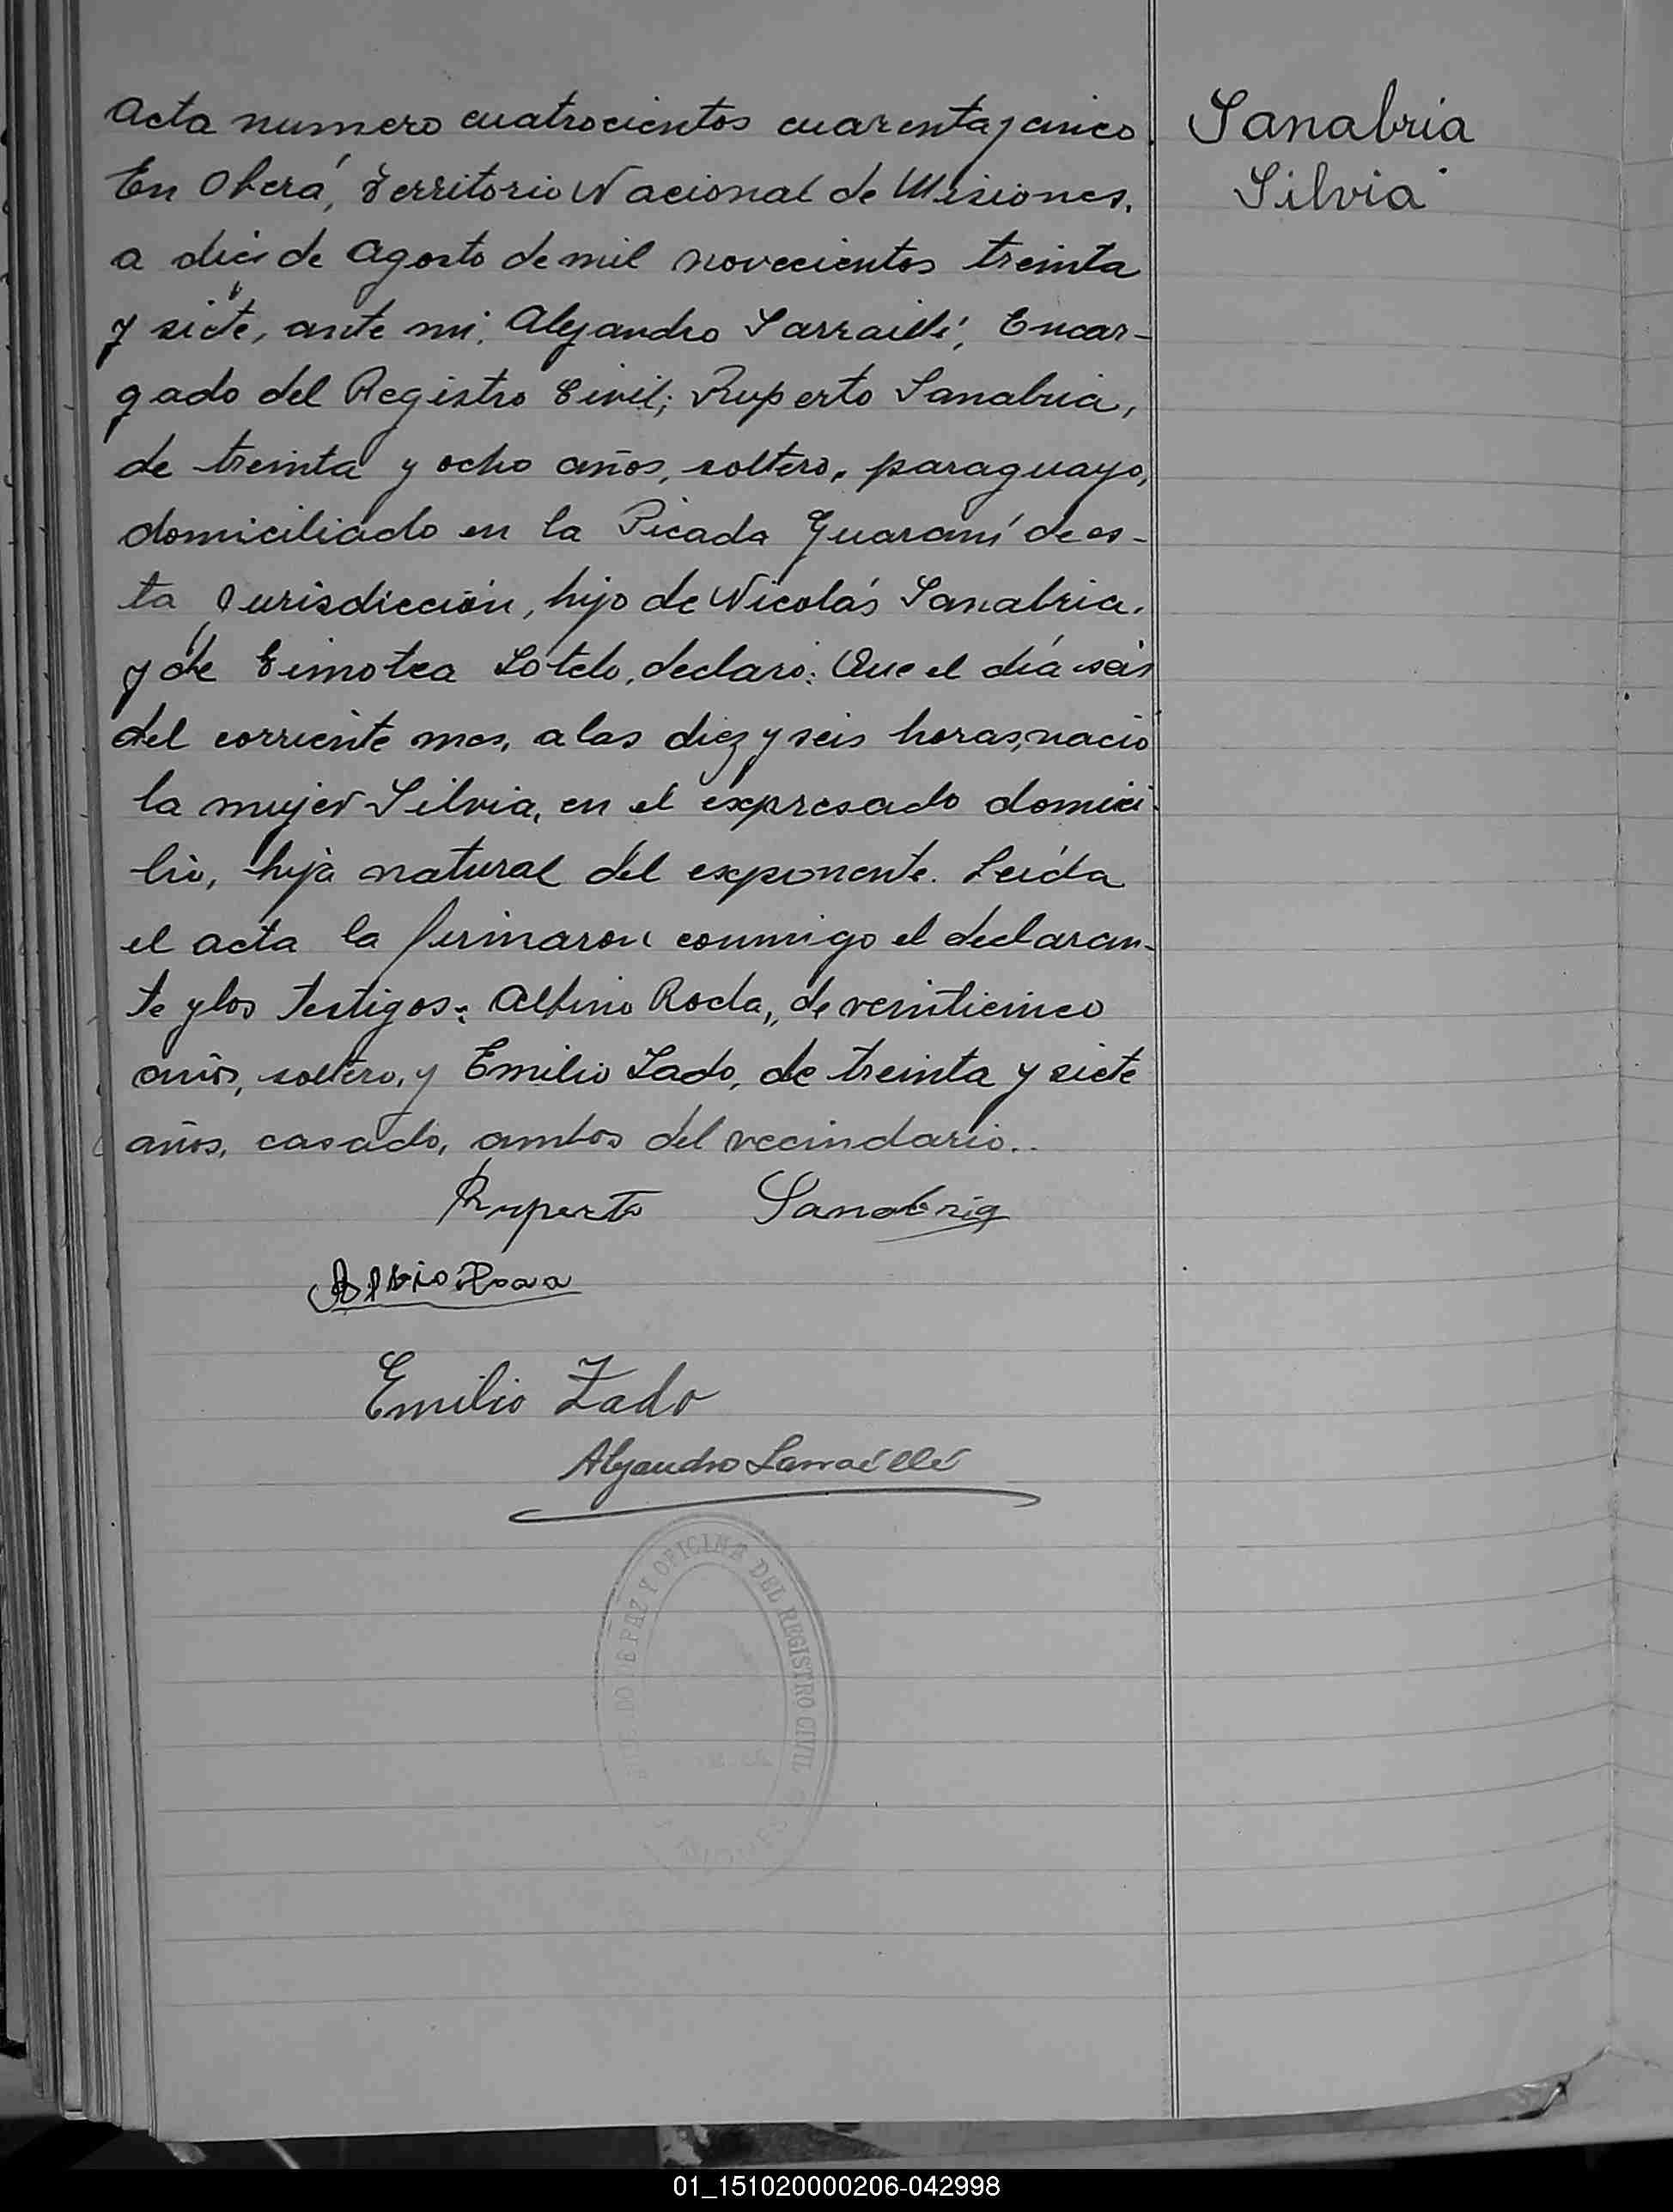 Acta numero cuatrocientos cuarenta y cinco.
Sanabria
Silvia
En Oberá, Territorio Nacional de Misiones,
a dies de Agosto de mil novecientos treinta
y siete, ante mi, Alejandro Sarraillé, Encar-
gado del Registro Civil; Ruperto Sanabria,
de treinta y ocho años, soltero, paraguayo,
domiciliado en la Picada Guaraní de es-
ta Jurisdicción, hijo de Nicolás Sanabria
y de Timotea Sotelo, declaró: Que el día seis
del corriente mes, a las diez y seis horas, nació
la mujer Silvia, en el expresado domici-
lio, hija natural del exponente. Leída
el acta la firmaron conmigo el declaran-
te y los testigos: Albino Roda, de veinticinco
años, soltero, y Emilio Zado, de treinta y siete
años, casado, ambos del vecindario..
Ruperto Sanabria
Emilio Zado
Alejandro Sarraillé
DO DE PAZ Y OFICINA DEL REGISTRO CIVIL
01_151020000206-042998